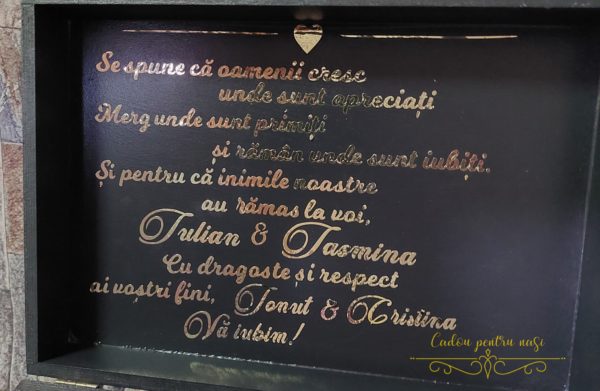 Se spune că oamenii cresc
unde sunt apreciați
Merg unde sunt primiți
și rămân unde sunt iubiți.
Și pentru că inimile noastre
au rămas la voi,
Iulian & Iasmina
Cu dragoste și respect
ai voștri fini, Ionut & Cristina
Vă iubim!
Cadou pentru nași